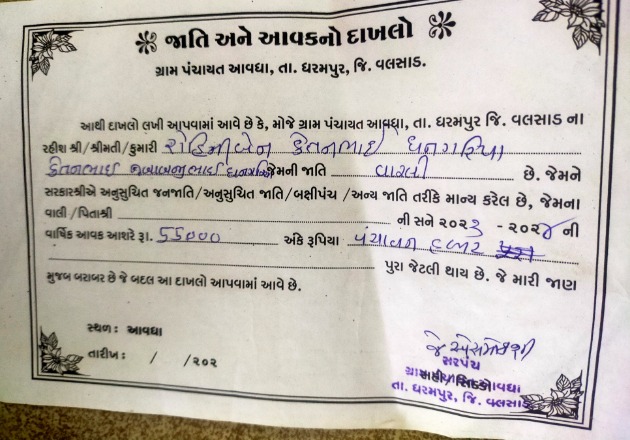 જાતિ અને આવકનો દાખલો
ગ્રામ પંચાયત આવધા, તા. ધરમપુર, જિ. વલસાડ.
આથી દાખલો લખી આપવામાં આવે છે કે, મોજે ગ્રામ પંચાયત આવધા, તા. ધરમપુર જિ. વલસાડ ના
રહીશ શ્રી/શ્રીમતી/કુમારી રોહિનીબેન કેતનભાઈ ધનગરિયા
કેતનભાઈ જેમની જાતિ વારલી છે. જેમને
સરકારશ્રીએ અનુસુચિત જનજાતિ/અનુસુચિત જાતિ/બક્ષીપંચ/અન્ય જાતિ તરીકે માન્ય કરેલ છે, જેમના
વાલી/પિતાશ્રી ની સને ૨૦૨૩ - ૨૦૨૪ ની
વાર્ષિક આવક આશરે રૂા. 55000 અંકે રૂપિયા પંચાવન હજાર પુરા
પુરા જેટલી થાય છે. જે મારી જાણ
મુજબ બરાબર છે જે બદલ આ દાખલો આપવામાં આવે છે.
સ્થળ: આવધા
તારીખ: / /૨૦૨
સરપંચ
તા. ધરમપુર, જિ. વલસાડ